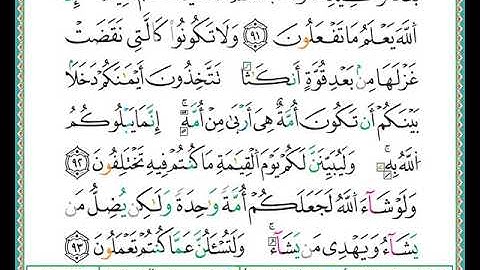 ٱللَّهَ يَعْلَمُ مَا تَفْعَلُونَ ٩١ وَلَا تَكُونُوا۟ كَٱلَّتِى نَقَضَتْ
غَزْلَهَا مِنۢ بَعْدِ قُوَّةٍ أَنكَـٰثًا تَتَّخِذُونَ أَيْمَـٰنَكُمْ دَخَلًۢا
بَيْنَكُمْ أَن تَكُونَ أُمَّةٌ هِىَ أَرْبَىٰ مِنْ أُمَّةٍ ۚ إِنَّمَا يَبْلُوكُمُ
ٱللَّهُ بِهِۦ ۚ وَلَيُبَيِّنَنَّ لَكُمْ يَوْمَ ٱلْقِيَـٰمَةِ مَا كُنتُمْ فِيهِ تَخْتَلِفُونَ ٩٢
وَلَوْ شَآءَ ٱللَّهُ لَجَعَلَكُمْ أُمَّةً وَٰحِدَةً وَلَـٰكِن يُضِلُّ مَن
يَشَآءُ وَيَهْدِى مَن يَشَآءُ ۚ وَلَتُسْـَٔلُنَّ عَمَّا كُنتُمْ تَعْمَلُونَ ٩٣